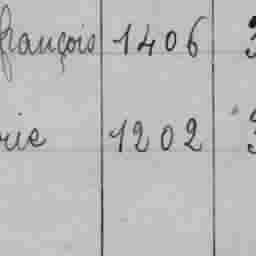 françois 1406 3
rie 1202 3